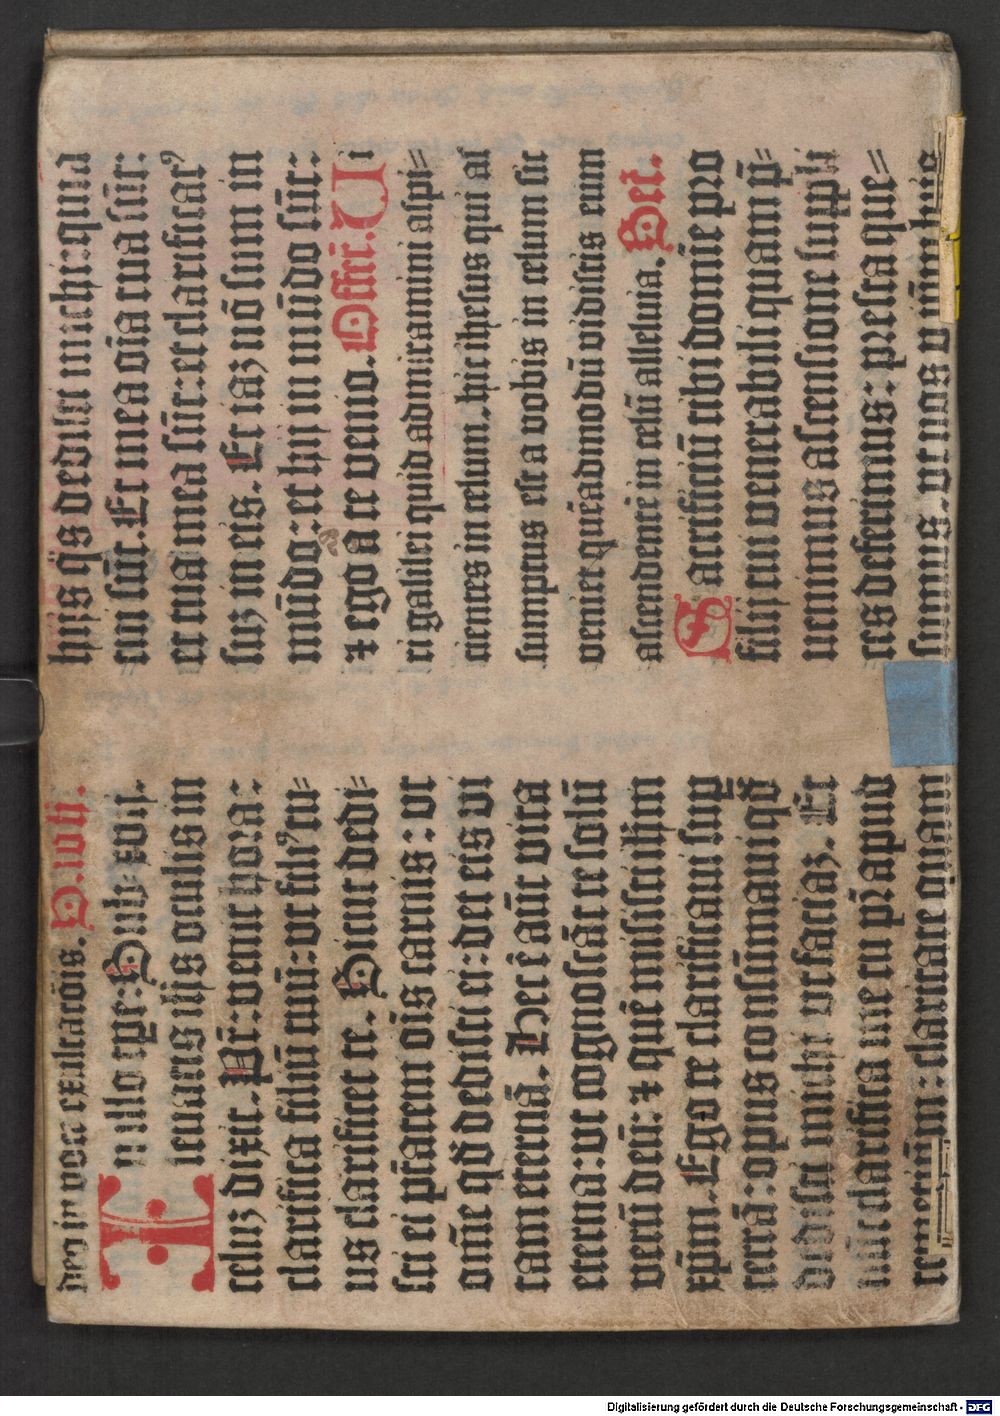 deo in voce exultacōis. S. ioh.
In illo tꝑe: Subleuatis ihs oculis in
celuꝫ dixit. Pr̄: venit hora:
clarifica filiū tuū: vt filiꝰ tu=
us clarificet te. Sicut dedi=
sti ei ptātem oīs carnis: vt
om̄e qđ dedisti ei: det eis vi
tam eternā. Hec ē aūt vita
eterna: vt cognoscāt te solū
verū deū: ⁊ quē misisti ihm
xp̄m. Ego te clarificaui suꝑ
terrā: opus consūmaui qđ
dedisti michi vt faciaꝫ. Et
nūc clarifica me tu pr̄ apud
temetip̄m: claritate quam
hijs q̄s dedisti michi: quia
tui sūt. Et mea oīa tua sūt:
et tua mea sūt: et clarificatꝰ
suꝫ in eis. Et iaꝫ nō sum in
mūdo: et hij in mūdo sūt:
⁊ ego a te venio. Offer. Ui
ri galilei quid admiramini aspi=
cientes in celum: hic ihesus qui as
sumptus est a vobis in celum sic
veniet quēadmodū vidistis eum
ascendentē in celū alleluia. Secr̄.
Sacrificiū tibi domīe pro
filij tui venerabili quam p̄=
uenimus ascensione suppli
ces deferimus: presta que=
sumus: vt nos
Digitalisierung gefördert durch die Deutsche Forschungsgemeinschaft - DFG